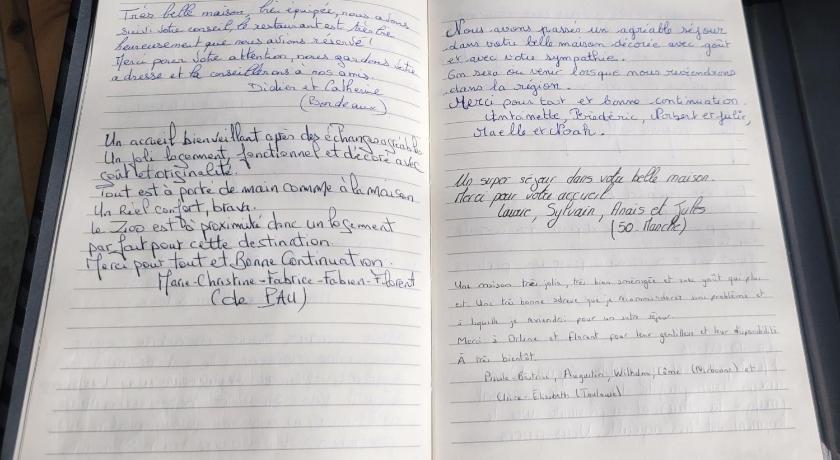 Très belle maison, très équipée, nous avons
suivi votre conseil, le restaurant est très
heureusement que nous avions réservé !
Merci pour votre attention, nous gardons votre
adresse et la conseillerons à nos amis.
Didier et Catherine
(Bordeaux)
Un accueil bienveillant après des échanges agréables
Un joli logement, fonctionnel et décoré avec
goût et originalité.
Tout est à porte de main comme à la maison
Un Réel confort, bravo.
Le Zoo est à proximité donc un logement
parfait pour cette destination.
Merci pour tout et Bonne Continuation.
Marie-Christine-Fabrice-Fabien-Florent
(de PAU)
Nous avons passés un agréable séjour
dans votre belle maison décorée avec goût
et avec votre sympathie.
On sera où venir lorsque nous reviendrons
dans la région.
Merci pour tout et bonne continuation.
Antoinette, Frédéric, Robert et Julie,
Maelle et Noah.
Un super séjour dans votre belle maison.
Merci pour votre accueil
Laurie, Sylvain, Anaïs et Jules
(50. Manche)
Une maison très jolie, très bien aménagée et
est. Une très bonne adresse que je recommanderai sans problème et
à laquelle je reviendrai pour un autre séjour.
Merci à et Florent pour leur gentillesse et leur disponibilité
À très bientôt.
Augustin, Wilhelm, Côme (Narbonne) et
Elisabeth (Toulouse)